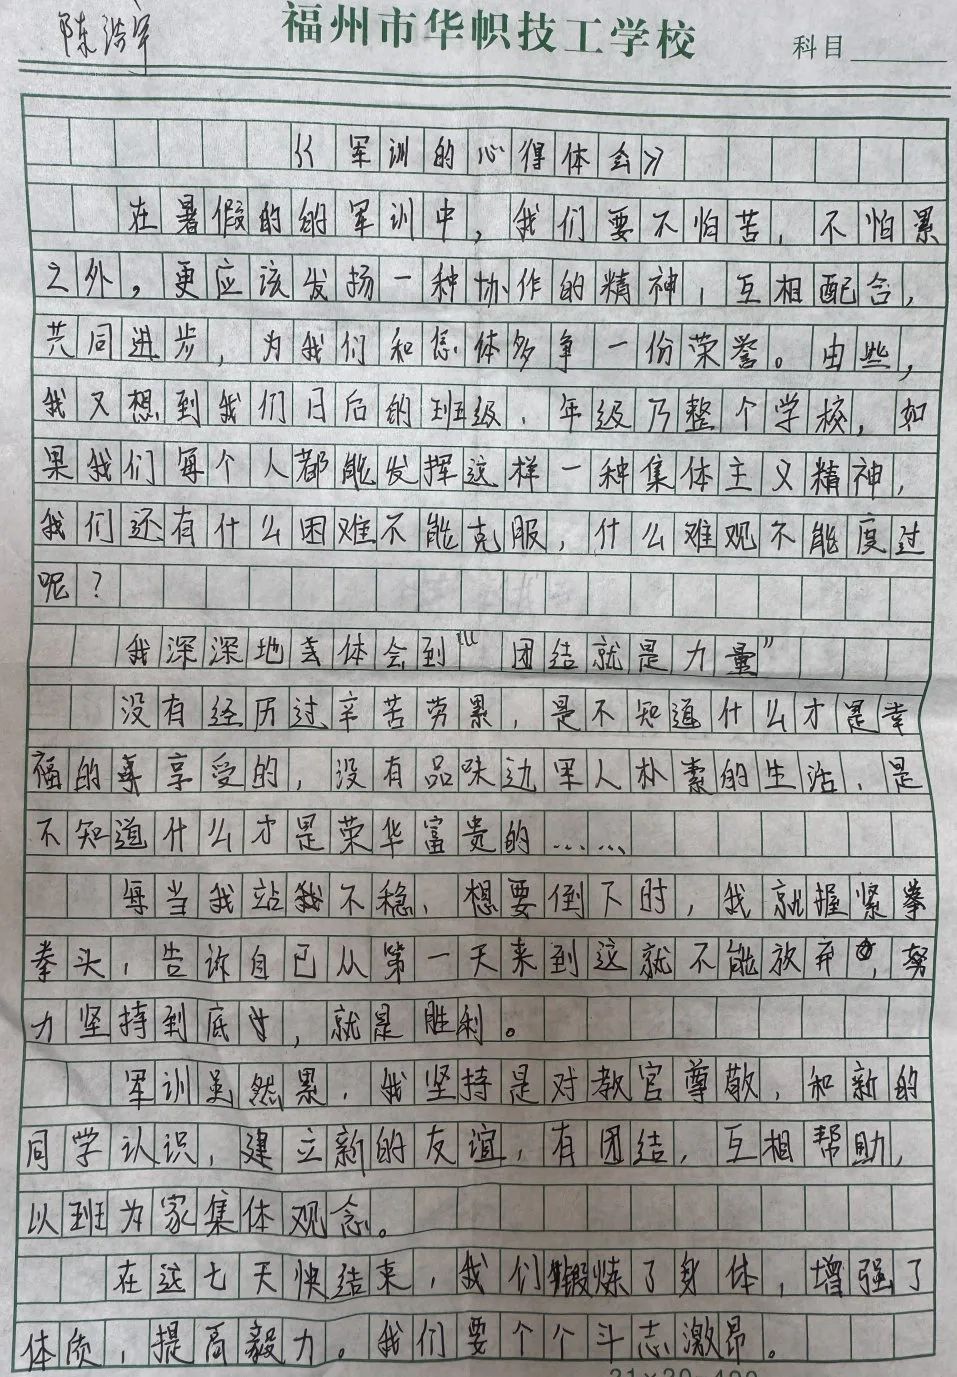 陈浩宇
福州市华帜技工学校
科目
《军训的心得体会》
在暑假的的军训中，我们要不怕苦，不怕累
之外，更应该发扬一种协作的精神，互相配合，
共同进步，为我们和集体多争一份荣誉。由些，
我又想到我们日后的班级、年级乃整个学校，如
果我们每个人都能发挥这样一种集体主义精神，
我们还有什么困难不能克服，什么难观不能度过
呢？
我深深地体会到“团结就是力量”
没有经历过辛苦劳累，是不知道什么才是幸
福的享受的，没有品味边军人朴素的生活，是
不知道什么才是荣华富贵的……
每当我站不稳、想要倒下时，我就握紧拳
拳头，告诉自已从第一天来到这就不能放弃，努
力坚持到底，就是胜利。
军训虽然累，我坚持是对教官尊敬，和新的
同学认识，建立新的友谊，有团结，互相帮助，
以班为家集体观念。
在这七天快结来，我们锻炼了身体，增强了
体质，提高毅力。我们要个个斗志激昂。